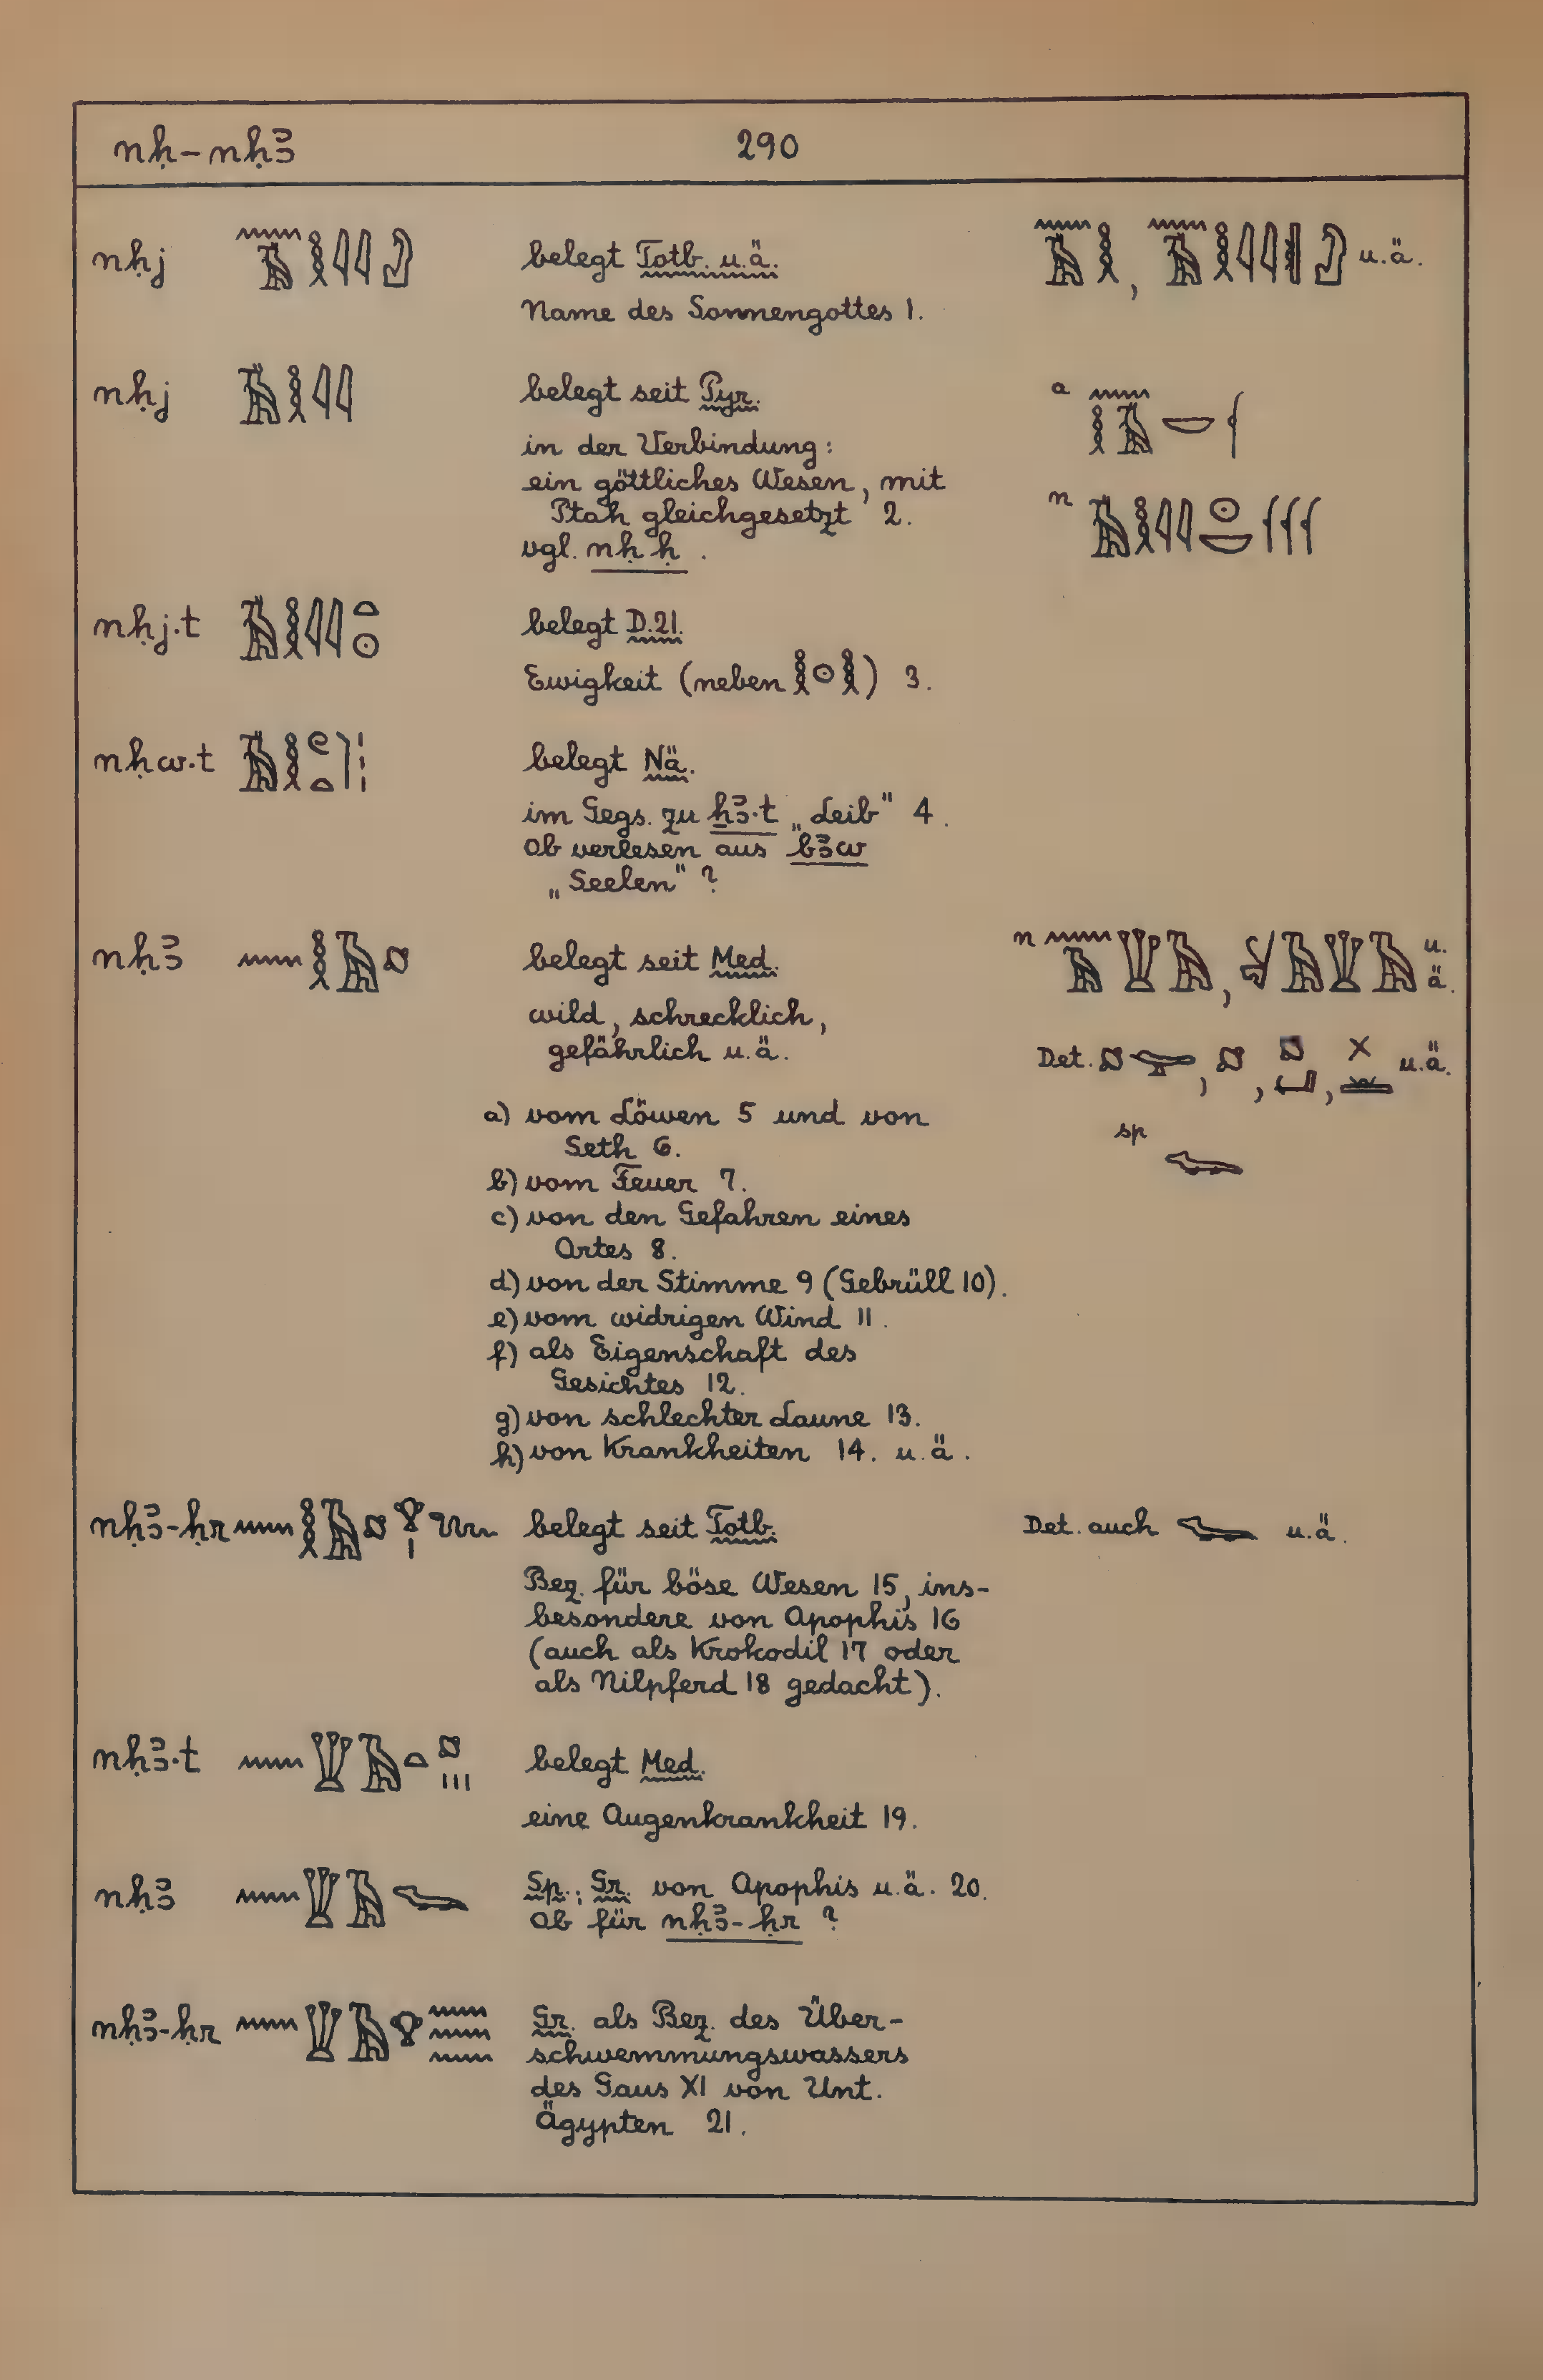 nḥ – nḥꜣ 290
nḥj belegt Totb. u.ä. u.ä.
Name des Sonnengottes 1.
nḥj belegt seit Pyr. a
in der Verbindung:
ein göttliches Wesen, mit
Ptah gleichgesetzt 2. n
vgl. nḥḥ.
nḥj.t belegt D.21.
Ewigkeit (neben 𓎛𓇳𓎛) 3.
nḥw.t belegt Nä.
im Gegs. zu ẖꜣ.t „Leib" 4.
Ob verlesen aus bꜣw
„Seelen"?
nḥꜣ belegt seit Med. n u.ä.
wild, schrecklich,
gefährlich u.ä. Det. u.ä.
a) vom Löwen 5 und von sp
Seth 6.
b) vom Feuer 7.
c) von den Gefahren eines
Ortes 8.
d) von der Stimme 9 (Gebrüll 10).
e) vom widrigen Wind 11.
f) als Eigenschaft des
Gesichtes 12.
g) von schlechter Laune 13.
h) von Krankheiten 14. u.ä.
nḥꜣ-ḥr belegt seit Totb. Det. auch u.ä.
Bez. für böse Wesen 15, ins-
besondere von Apophis 16
(auch als Krokodil 17 oder
als Nilpferd 18 gedacht).
nḥꜣ.t belegt Med.
eine Augenkrankheit 19.
nḥꜣ Sp.; Gr. von Apophis u.ä. 20.
Ob für nḥꜣ-ḥr ?
nḥꜣ-ḥr Gr. als Bez. des Über-
schwemmungswassers
des Gaus XI von Unt.
Ägypten 21.